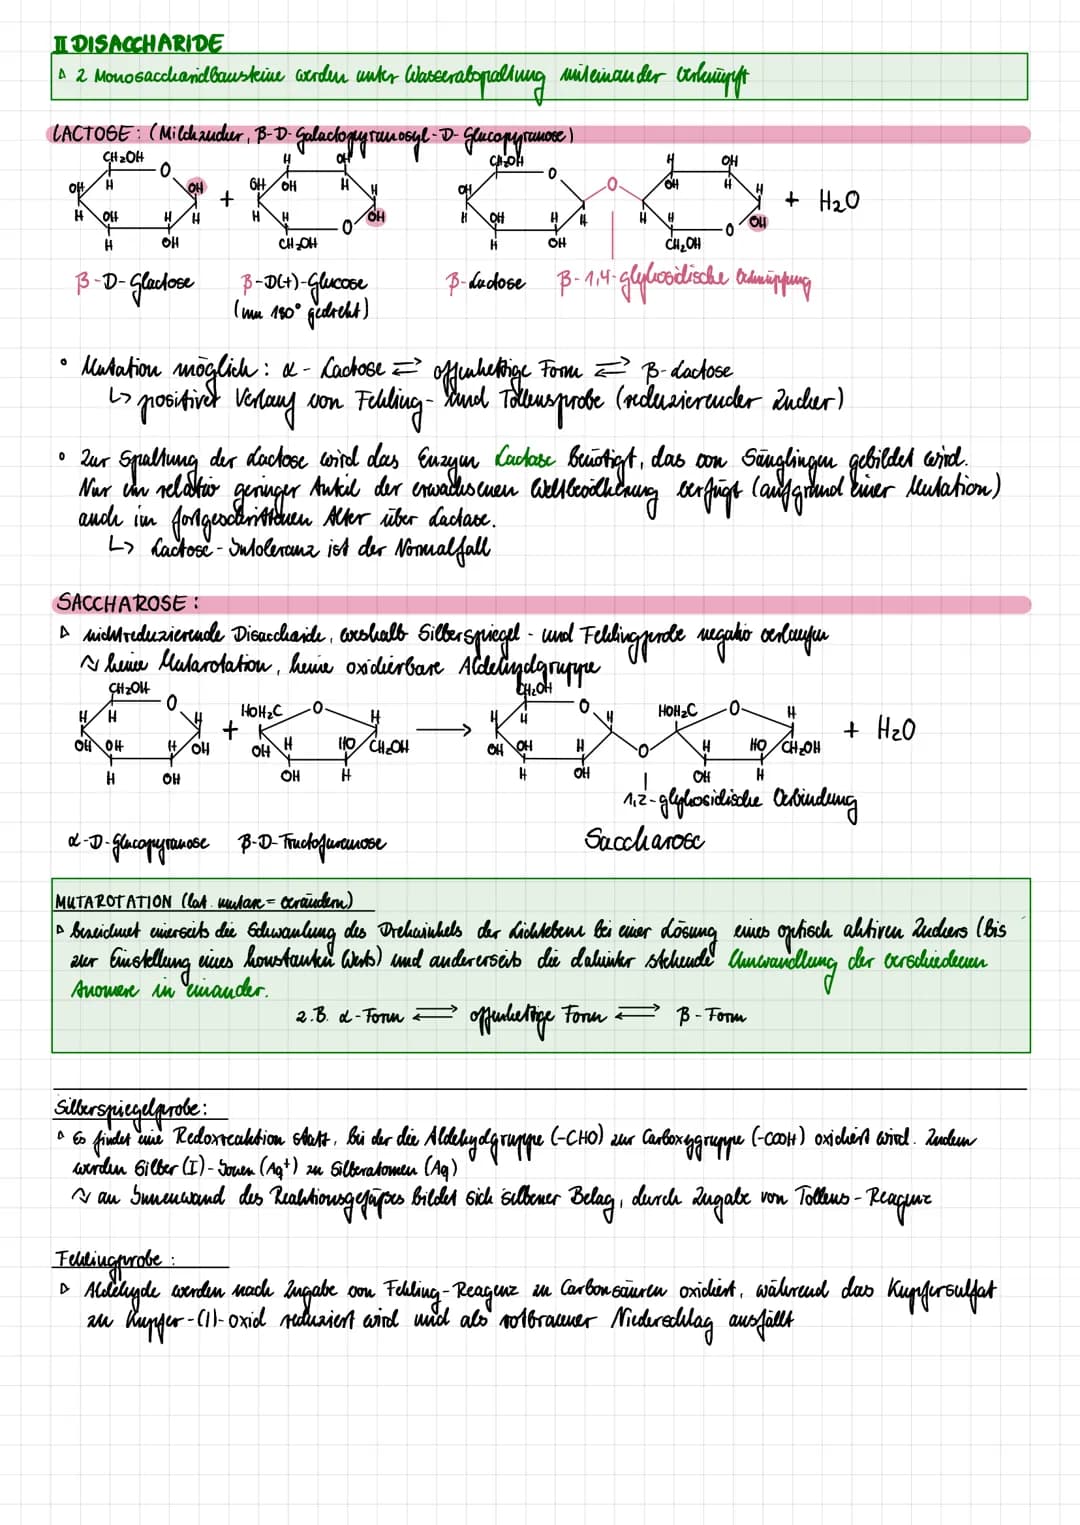 II DISACCHARIDE
▵ 2 Monosaccharidbausteine werden unter Wasserabspaltung miteinander verknüpft
LACTOSE: (Milchzucker, β-D-Galactopyranosyl-D-Glucopyranose)
CH₂OH H OH CH₂OH H OH
O O
OH H OH + OH OH H H OH H O OH H H + H₂O
H OH H H H H O OH H OH H H H H O OH
H OH CH₂OH H OH CH₂OH
β-D-Glactose β-D(+)-Glucose β-Lactose β-1,4-glykosidische Verknüpfung
(um 180° gedreht)
• Mutation möglich: α-Lactose ⇌ offenkettige Form ⇌ β-Lactose
↳ positiver Verlauf von Fehling- und Tollensprobe (reduzierender Zucker)
• Zur Spaltung der Lactose wird das Enzym Lactase benötigt, das von Säuglingen gebildet wird.
Nur ein relativ geringer Anteil der erwachsenen Weltbevölkerung verfügt (aufgrund einer Mutation)
auch im fortgeschrittenen Alter über Lactase.
↳ Lactose-Intoleranz ist der Normalfall
SACCHAROSE:
▵ nichtreduzierende Disaccharide, weshalb Silberspiegel- und Fehlingprobe negativ verlaufen
↝ keine Mutarotation, keine oxidierbare Aldehydgruppe
CH₂OH CH₂OH
O HOH₂C O O HOH₂C O
H H H + H → H H H H + H₂O
OH OH H OH OH H HO CH₂OH OH OH H O H HO CH₂OH
H OH OH H H OH OH H
1,2-glykosidische Verbindung
α-D-Glucopyranose β-D-Fructofuranose Saccharose
MUTAROTATION (lat. mutare = verändern)
▵ bezeichnet einerseits die Schwankung des Drehwinkels der Lichtebene bei einer Lösung eines optisch aktiven Zuckers (bis
zur Einstellung eines konstanten Werts) und andererseits die dahinter stehende Umwandlung der verschiedenen
Anomere in einander.
z.B. α-Form ⇌ offenkettige Form ⇌ β-Form
Silberspiegelprobe:
▵ Es findet eine Redoxreaktion statt, bei der die Aldehydgruppe (-CHO) zur Carboxygruppe (-COOH) oxidiert wird. Zudem
werden Silber(I)-Ionen (Ag⁺) zu Silberatomen (Ag)
↝ an Innenwand des Reaktionsgefäßes bildet sich silbener Belag, durch Zugabe von Tollens-Reagenz
Fehlingprobe:
▵ Aldehyde werden nach Zugabe von Fehling-Reagenz zu Carbonsäuren oxidiert, während das Kupfersulfat
zu Kupfer-(I)-oxid reduziert wird und als rotbrauner Niederschlag ausfällt